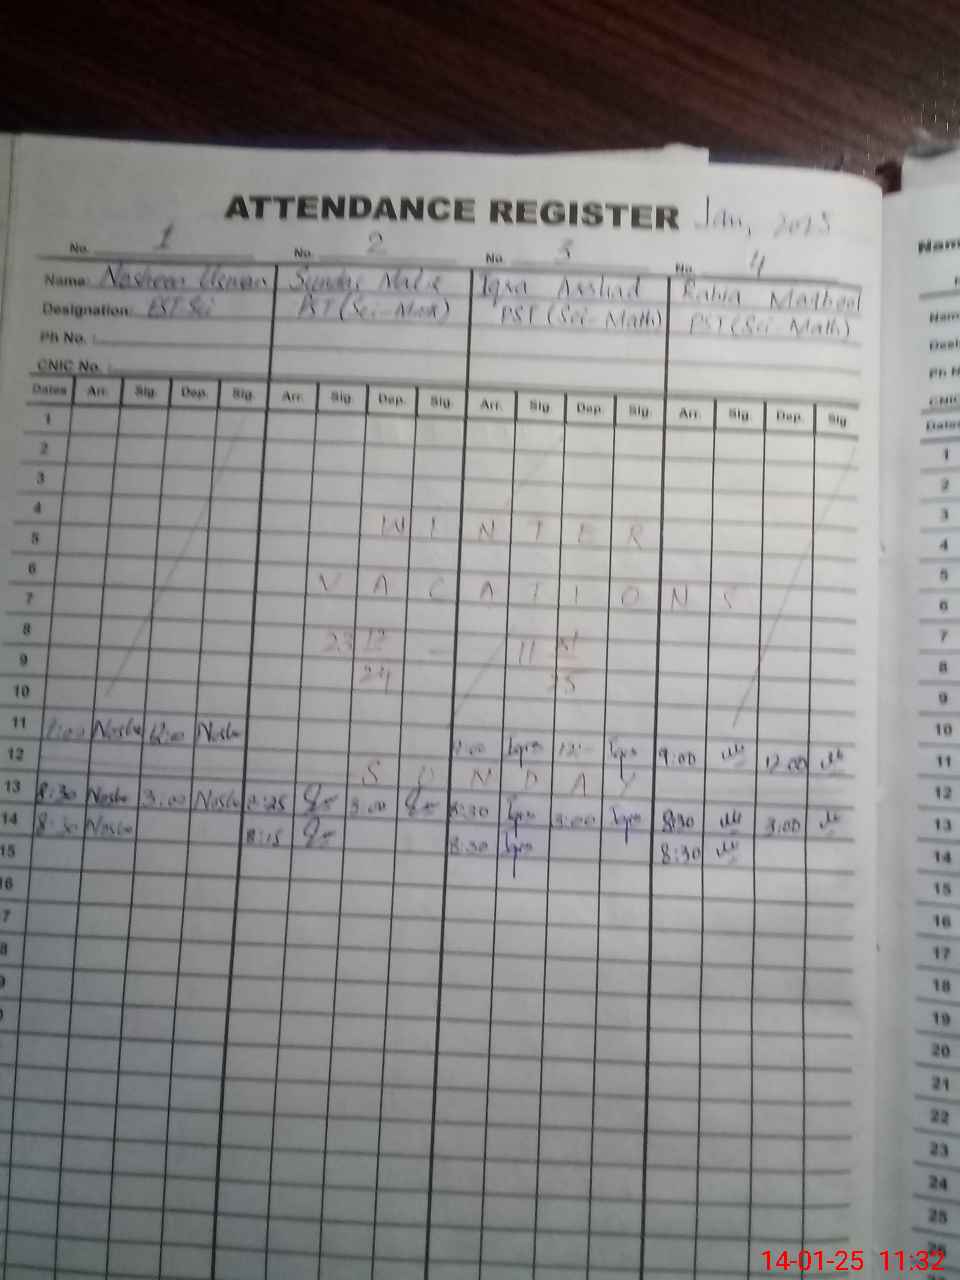 ATTENDANCE REGISTER Jan, 2025
No. 1 No. 2 No. 3 No. 4
Name: Nosheen Usman Iqra Arshad Rabia Maqbool
Designation: PST (Sci-Math) PST (Sci-Math)
Ph No. :
CNIC No. :
Dates Arr. Sig. Dep. Sig. Arr. Sig. Dep. Sig. Arr. Sig. Dep. Sig. Arr. Sig. Dep. Sig.
1
2
3
4
5 WINTER
6
7 VACATIONS
8 23 12 - 11
9 24 25
10
11 Nosh 12:00 Nosh 9:00 Iqra Iqra 9:00 12:00
12 SUNDAY
13 8:30 Nosh 3:00 Nosh 8:25 3:00 8:30 Iqra 3:00 Iqra 8:30 3:00
14 8:30 Nosh 8:15 8:30 Iqra 8:30
15
16
Name
Desi
Ph N
CNIC
Dates
1
2
3
4
5
6
7
8
9
10
11
12
13
14
15
16
17
18
19
20
21
22
23
24
25
26
14-01-25 11:32